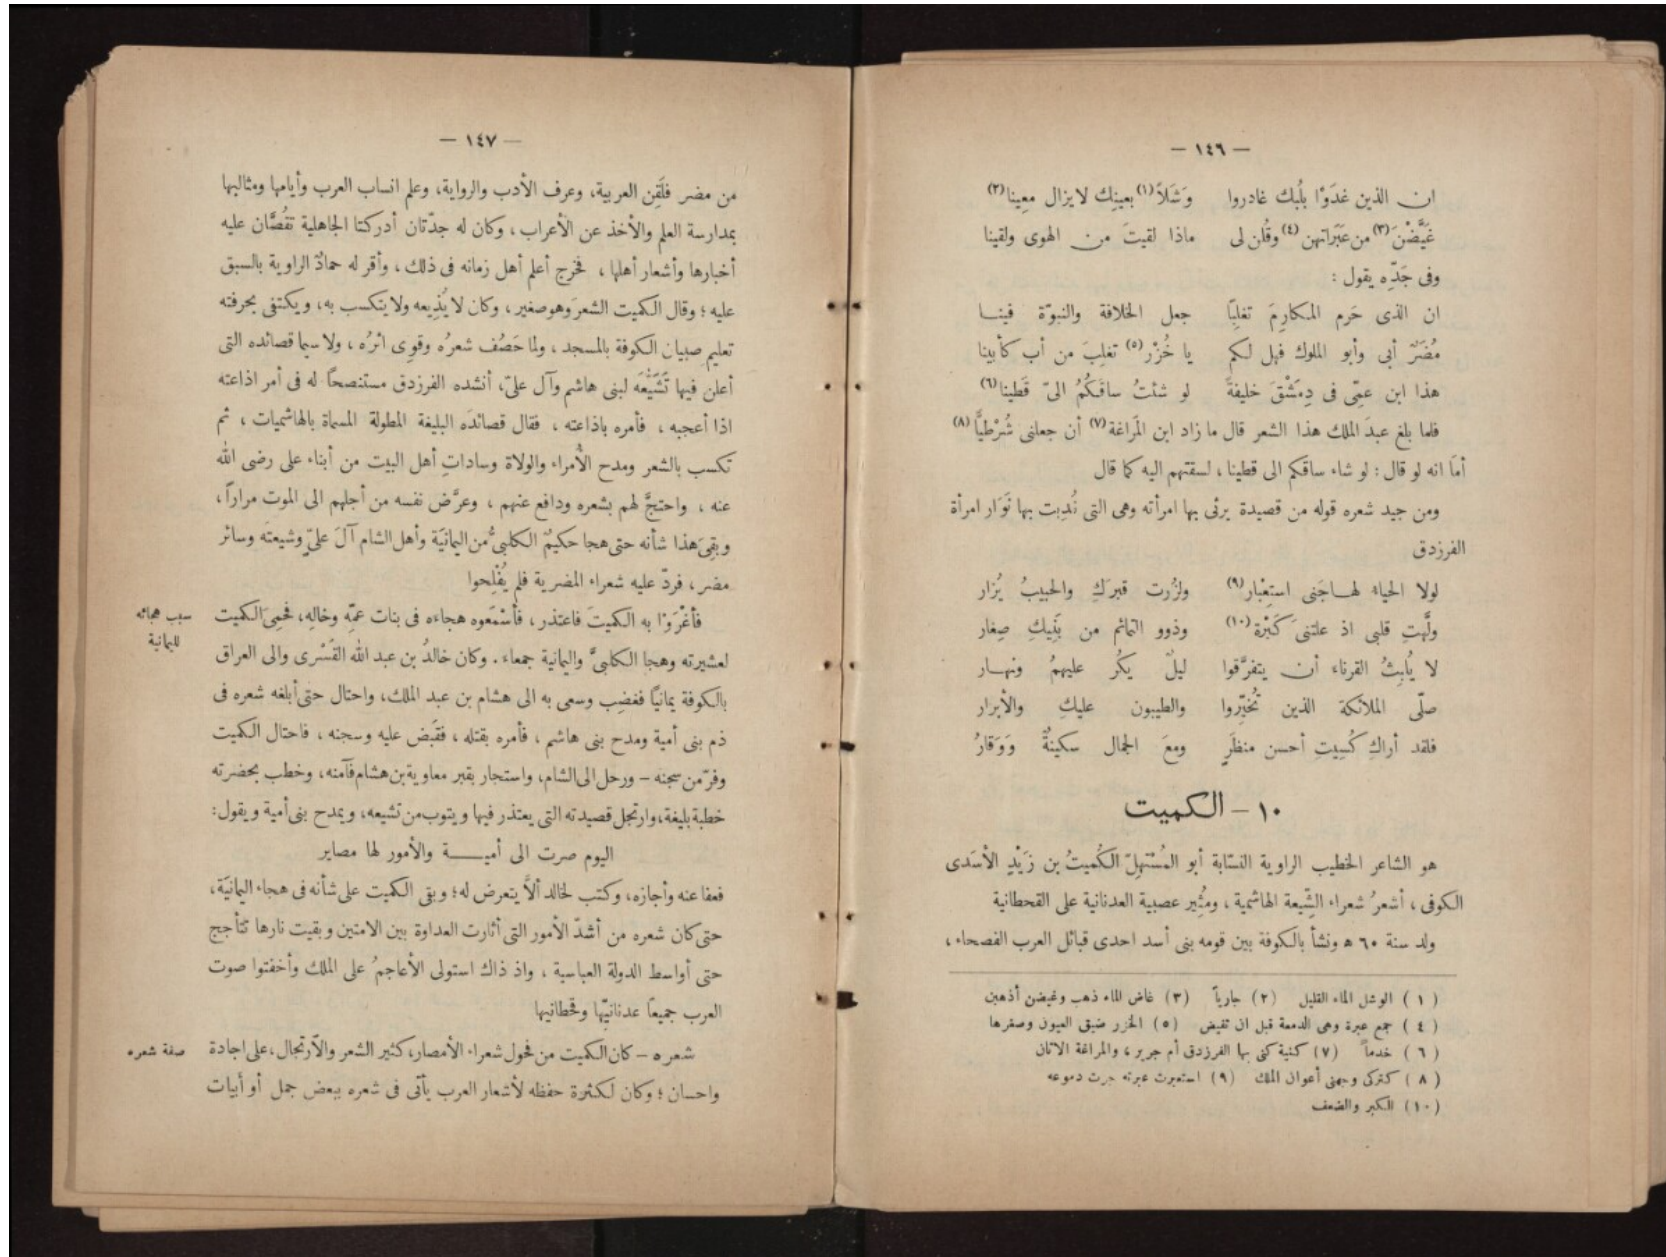 — ١٤٦ —
ان الذين غدَوْا بلُبك غادروا وَشَلاً (١) بعينِك لا يزال معِينا (٢)
غَيَّضْنَ (٣) من عَبَراتهن (٤) وقُلن لى ماذا لقيتَ من الهوى ولقينا
وفى جَدِّه يقول :
ان الذى حَرم المكارِمَ تغلِبًا جعل الخلافة والنبوّة فينا
مُضَرٌ أبى وأبو الملوك فهل لكم يا خُزْر (٥) تغلِبَ من أب كأبينا
هذا ابن عمِّى فى دِمَشْقَ خليفةً لو شئتُ ساقكُمُ الىّ قَطينا (٦)
فلما بلغ عبدَ الملك هذا الشعر قال ما زاد ابن المَراغة (٧) أن جعلنى شُرْطيًّا (٨)
أمَا انه لو قال : لو شاء ساقكم الى قطينا ، لسقتهم اليه كما قال
ومن جيد شعره قوله من قصيدة يرثى بها امرأته وهى التى نُدِبت بها نَوَار امرأة
الفرزدق
لولا الحياء لهاجَنى استِعْبار (٩) ولزُرت قبرَكِ والحبيبُ يُزار
ولَّهتِ قلبى اذ علتنىَ كَبْرة (١٠) وذوو التمائم من بَنِيكِ صِغار
لا يُلبِثُ القرناء أن يتفرَّقوا ليلٌ يكُر عليهمُ ونهار
صلّى الملائكة الذين تُخيِّروا والطيبون عليكِ والأبرار
فلقد أراكِ كُسِيتِ أحسن منظَرٍ ومعَ الجمال سكينةٌ وَوَقارُ
١٠ – الكميت
هو الشاعر الخطيب الراوية النسّابة أبو المُسْتَهِلّ الكُميتُ بن زَيْدٍ الأسَدى
الكوفى ، أشعرُ شعراء الشِّيعة الهاشمية ، ومُثِير عصبية العدنانية على القحطانية
ولد سنة ٦٠ ه ونشأ بالكوفة بين قومه بنى أسد احدى قبائل العرب الفصحاء ،
(١) الوشل الماء القليل (٢) جارياً (٣) غاض الماء ذهب وغيضن أذهبن
(٤) جمع عبرة وهى الدمعة قبل ان تفيض (٥) الخزر ضيق العيون وصغرها
(٦) خدماً (٧) كنية كنى بها الفرزدق أم جرير ، والمراغة الاتان
(٨) كتركى وجهنى أعوان الملك (٩) استعبرت عبرته جرت دموعه
(١٠) الكبر والضعف
— ١٤٧ —
من مضر فلَقِن العربية، وعرف الأدب والرواية، وعلم انساب العرب وأيامها ومثالبها
بمدارسة العلم والأخذ عن الأعراب ، وكان له جدّتان أدركتا الجاهلية تقُصَّان عليه
أخبارها وأشعار أهلها ، فخرج أعلم أهل زمانه فى ذلك ، وأقر له حمادٌ الراوية بالسبق
عليه ؛ وقال الكميت الشعرَ وهو صغير ، وكان لا يُذِيعه ولا يتكسب به، ويكتفى بحرفته
تعليم صبيان الكوفة بالمسجد ، ولما حَصُف شعرُه وقوِى اثرُه ، ولا سيما قصائده التى
أعلن فيها تَشَيُّعَه لبنى هاشم وآل علىّ، أنشده الفرزدق مستنصحًا له فى أمر اذاعته
اذا أعجبه ، فأمره باذاعته ، فقال قصائدَه البليغة المطولة المسماة بالهاشميات ، ثم
تكسب بالشعر ومدح الأُمراء والولاة وساداتِ أهل البيت من أبناء على رضى الله
عنه ، واحتجَّ لهم بشعره ودافع عنهم ، وعرَّض نفسه من أجلهم الى الموت مراراً ،
وبقِىَ هذا شأنه حتى هجا حكيمُ الكلبىُّ من اليمانيَة وأهل الشام آلَ علىّ وشيعتَه وسائر
مضر ، فردّ عليه شعراء المضرية فلم يُفْلِحوا
سبب هجائه لليمانية
فأغْرَوْا به الكميتَ فاعتذر ، فأسْمَعوه هجاءه فى بنات عمِّه وخالِه، فحمِىَ الكميت
لعشيرته وهجا الكلبىَّ واليمانية جمعاء . وكان خالدُ بن عبد الله القَسْرى والى العراق
بالكوفة يمانيًا فغضِب وسعى به الى هشام بن عبد الملك، واحتال حتى أبلغه شعره فى
ذم بنى أمية ومدح بنى هاشم ، فأمره بقتله ، فقَبَض عليه وسجنه ، فاحتال الكميت
وفرّ من سجنه – ورحل الى الشام، واستجار بقبر معاوية بن هشام فآمنه، وخطب بحضرته
خطبة بليغة، وارتجل قصيدته التى يعتذر فيها ويتوب من تشيعه، ويمدح بنى أمية ويقول:
اليوم صرت الى أميـــة والأمور لها مصاير
فعفا عنه وأجازه، وكتب لخالد ألاَّ يتعرض له؛ وبقى الكميت على شأنه فى هجاء اليمانيَة،
حتى كان شعره من أشدّ الأمور التى أثارت العداوة بين الامتين وبقيت نارها تتأجج
حتى أواسط الدولة العباسية ، واذ ذاك استولى الأعاجمُ على الملك وأخفتوا صوت
العرب جميعًا عدنانيِّها وقحطانيها
صفة شعره
شعره – كان الكميت من فحول شعراء الأمصار، كثير الشعر والاّرتجال، على اجادة
واحسان ؛ وكان لكثرة حفظه لأشعار العرب يأتى فى شعره ببعض جمل أو أبيات